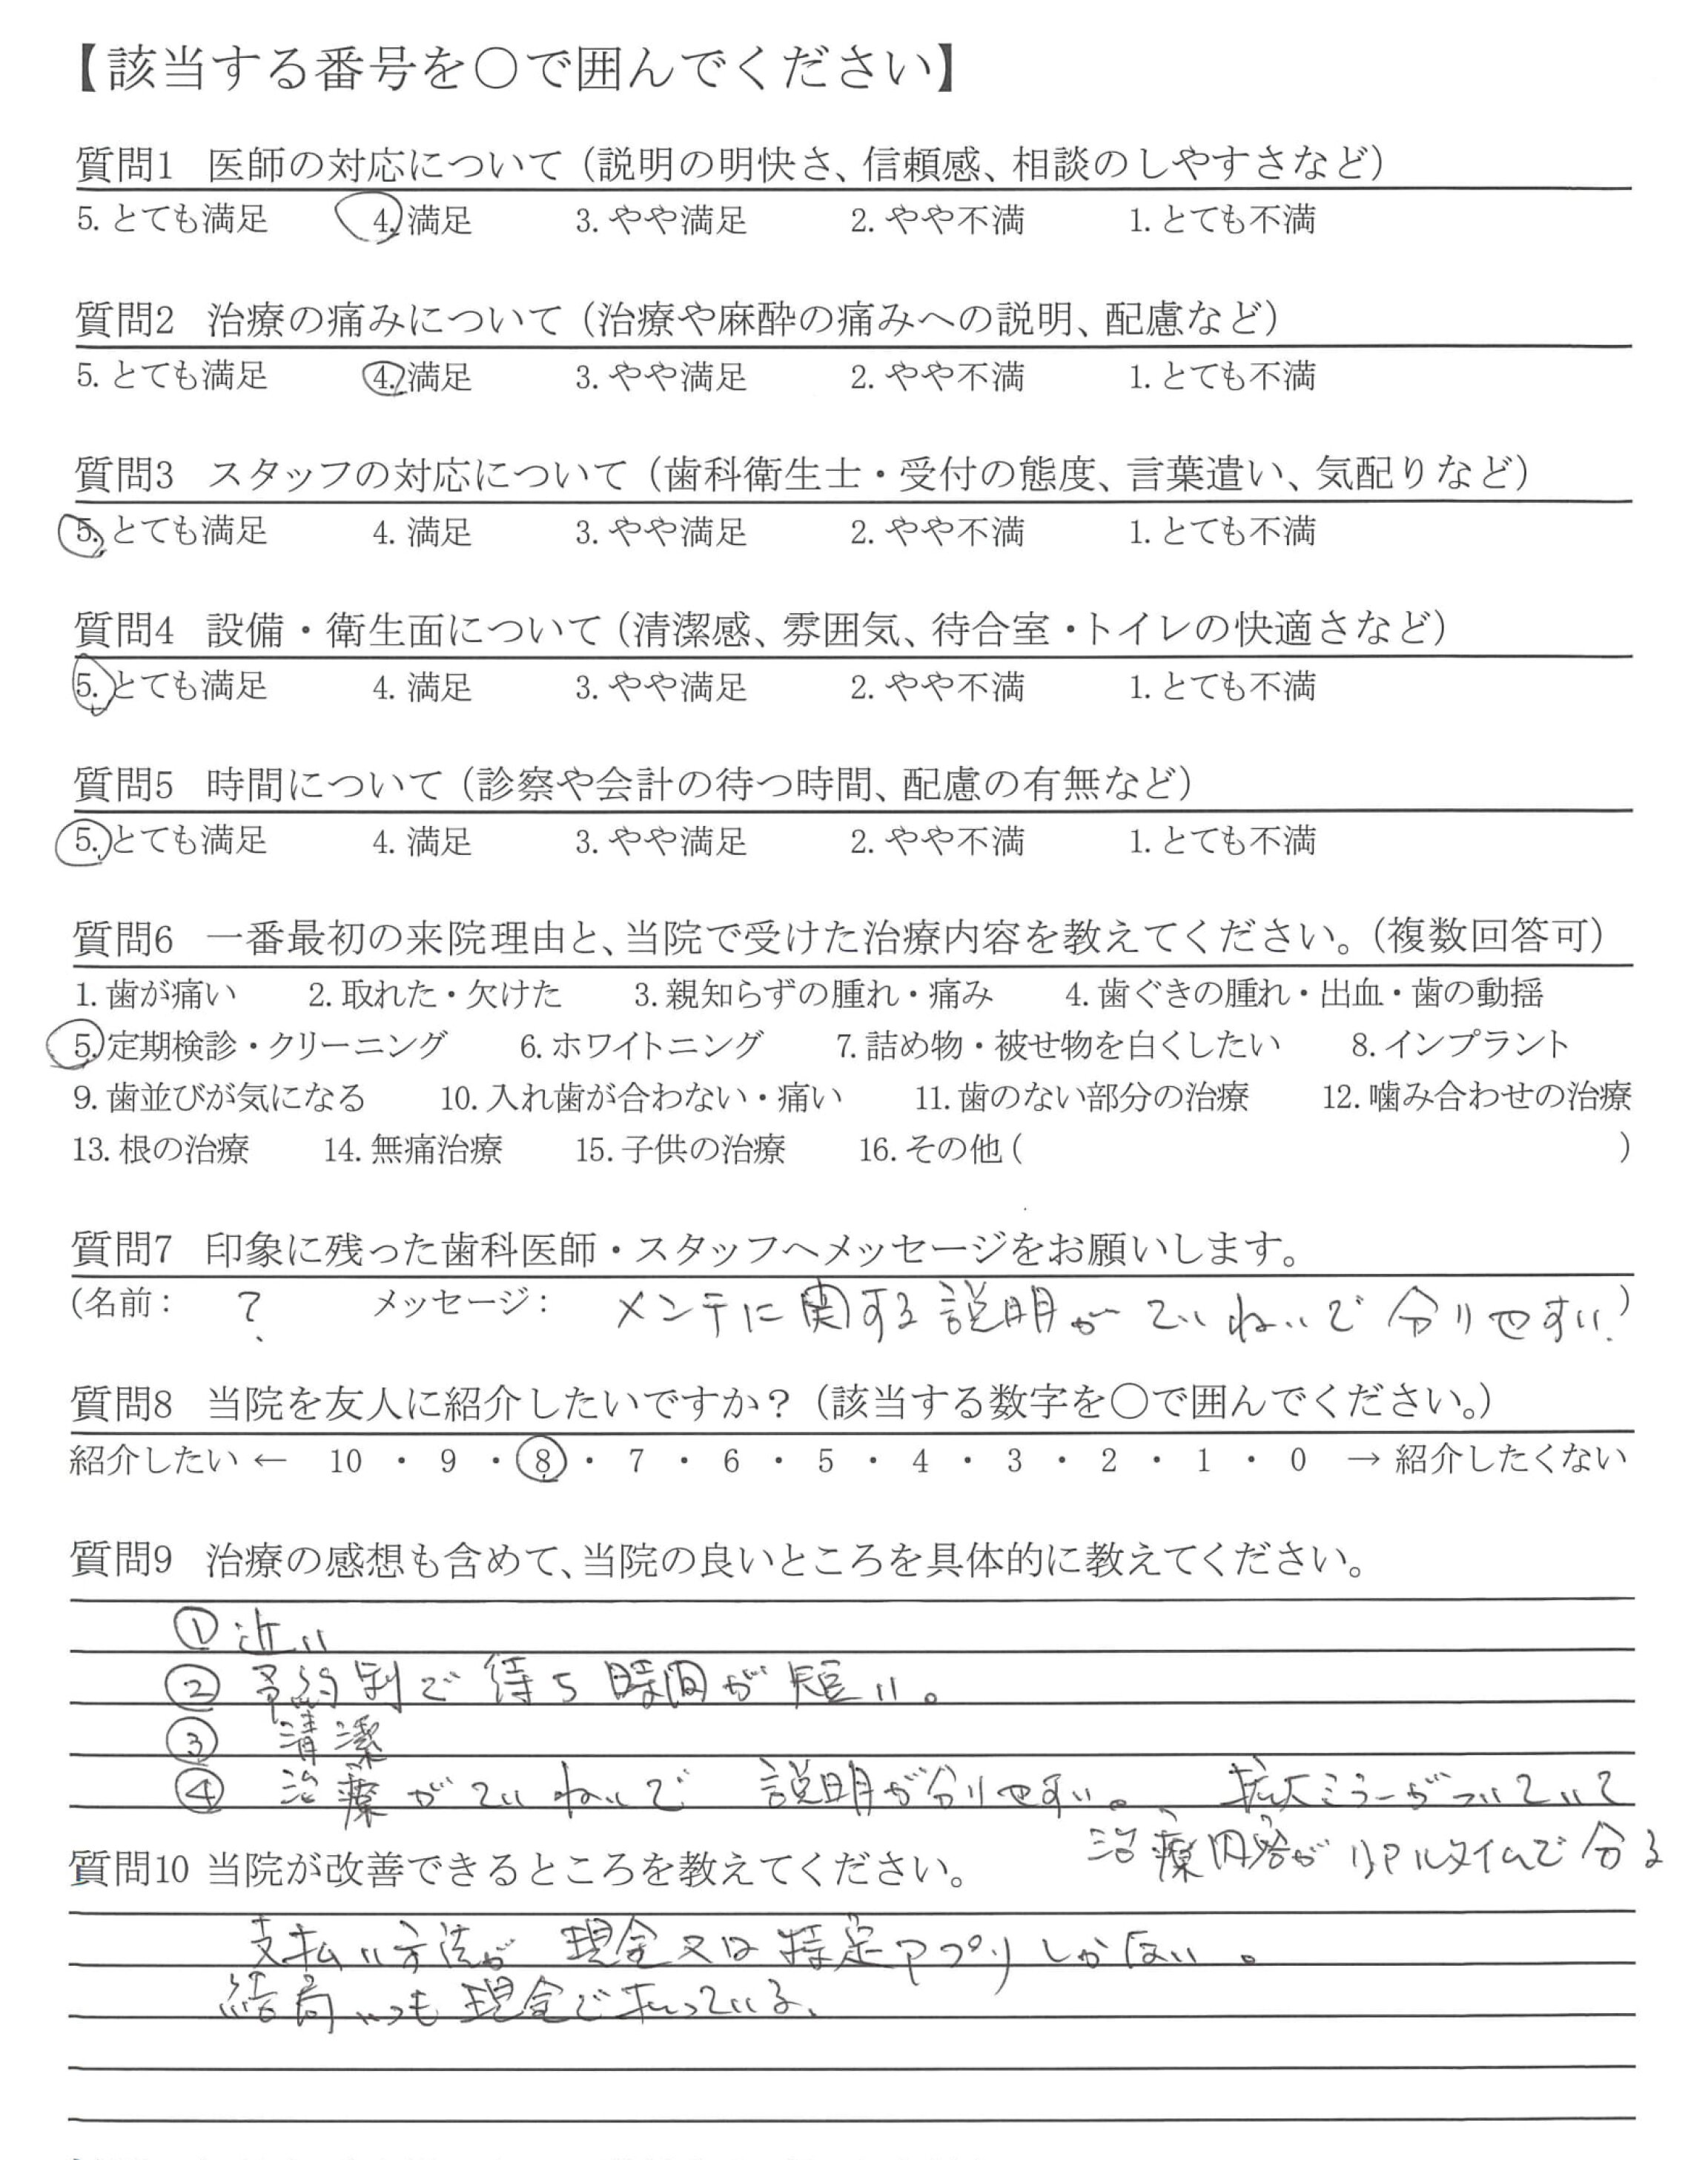 【該当する番号を○で囲んでください】
質問1 医師の対応について（説明の明快さ、信頼感、相談のしやすさなど）
5. とても満足 4. 満足 3. やや満足 2. やや不満 1. とても不満
質問2 治療の痛みについて（治療や麻酔の痛みへの説明、配慮など）
5. とても満足 4. 満足 3. やや満足 2. やや不満 1. とても不満
質問3 スタッフの対応について（歯科衛生士・受付の態度、言葉遣い、気配りなど）
5. とても満足 4. 満足 3. やや満足 2. やや不満 1. とても不満
質問4 設備・衛生面について（清潔感、雰囲気、待合室・トイレの快適さなど）
5. とても満足 4. 満足 3. やや満足 2. やや不満 1. とても不満
質問5 時間について（診察や会計の待つ時間、配慮の有無など）
5. とても満足 4. 満足 3. やや満足 2. やや不満 1. とても不満
質問6 一番最初の来院理由と、当院で受けた治療内容を教えてください。（複数回答可）
1. 歯が痛い 2. 取れた・欠けた 3. 親知らずの腫れ・痛み 4. 歯ぐきの腫れ・出血・歯の動揺
5. 定期検診・クリーニング 6. ホワイトニング 7. 詰め物・被せ物を白くしたい 8. インプラント
9. 歯並びが気になる 10. 入れ歯が合わない・痛い 11. 歯のない部分の治療 12. 噛み合わせの治療
13. 根の治療 14. 無痛治療 15. 子供の治療 16. その他 ( )
質問7 印象に残った歯科医師・スタッフへメッセージをお願いします。
(名前： ? メッセージ： メンテに関する説明がていねいで分りやすい.)
質問8 当院を友人に紹介したいですか？（該当する数字を○で囲んでください。）
紹介したい ← 10 ・ 9 ・ 8 ・ 7 ・ 6 ・ 5 ・ 4 ・ 3 ・ 2 ・ 1 ・ 0 → 紹介したくない
質問9 治療の感想も含めて、当院の良いところを具体的に教えてください。
① 近い
② 予約制で待ち時間が短い。
③ 清潔
④ 治療がていねいで 説明が分りやすい。、拡大ミラーがついていて
治療内容がリアルタイムで分る
質問10 当院が改善できるところを教えてください。
支払い方法が 現金又は特定アプリしかない。
結局いつも現金で払っている、